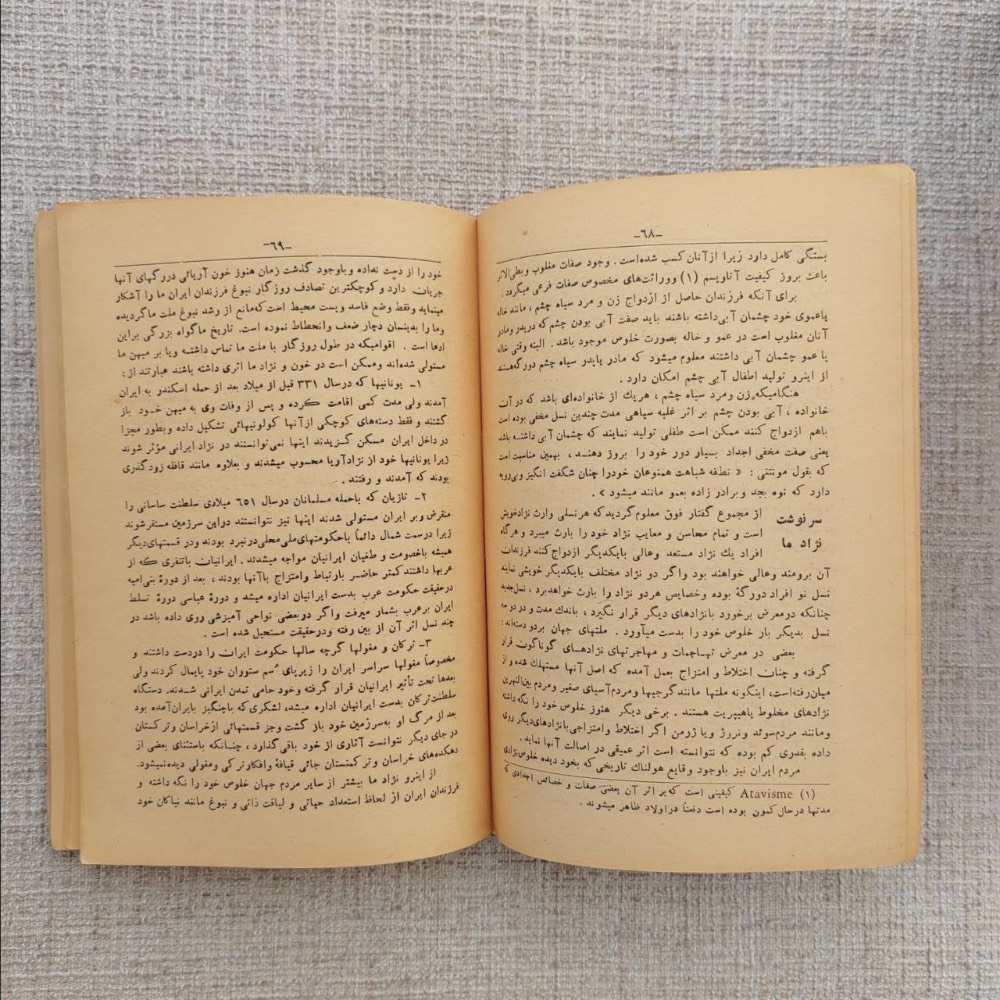 -٦٨-
بستگی کامل دارد زیرا ازآنان کسب شده‌است . وجود صفات مغلوب وبطی‌الاثر
باعث بروز کیفیت آتاویسم (۱) ووراثت‌های مخصوص صفات فرعی میگردد .
برای آنکه فرزندان حاصل از ازدواج زن و مرد سیاه چشم ، مانند خاله
یاعموی خود چشمان آبی‌داشته باشند باید صفت آبی بودن چشم که درپدر ومادر
آنان مغلوب است در عمو و خاله بصورت خلوص موجود باشد . البته وقتی خاله
یا عمو چشمان آبی داشتند معلوم میشود که مادر یاپدر سیاه چشم دورگه‌هستند
از اینرو تولید اطفال آبی چشم امکان دارد .
هنگامیکه زن ومرد سیاه چشم ، هریك از خانواده‌ای باشد که در آن
خانواده ، آبی بودن چشم بر اثر غلبه سیاهی مدت چندین نسل مخفی بوده است
باهم ازدواج کنند ممکن است طفلی تولید نمایند که چشمان آبی داشته باشد
یعنی صفت مخفی اجداد بسیار دور خود را بروز دهد ، بهمین مناسبت است
که بقول مونتنی : « نطفه شباهت همنوعان خودرا چنان شگفت انگیز وبی‌رویه
دارد که نوه بجد وبرادر زاده بعمو مانند میشود »
سرنوشت
نژاد ما
از مجموع گفتار فوق معلوم گردید که هرنسلی وارث نژادخویش
است و تمام محاسن و معایب نژاد خود را بارث میبرد و هرگاه
افراد یك نژاد مستعد وعالی بایکدیگر ازدواج کنند فرزندان
آن برومند وعالی خواهند بود واگر دو نژاد مختلف بایکدیگر خویشی نمایند
نسل نو افراد دورگهٔ بوده وخصایص هردو نژاد را بارث خواهدبرد ، نسل‌جدید
چنانکه درمعرض برخورد بانژادهای دیگر قرار نگیرد ، باندك مدت و در دو سه
نسل بدیگر بار خلوص خود را بدست میآورد . ملتهای جهان بر دو دسته‌اند :
بعضی در معرض تهاجمات و مهاجرتهای نژادهای گوناگون قرار
گرفته و چنان اختلاط و امتزاج بعمل آمده که اصل آنها مستهلك شده و از
میان رفته‌است ، اینگونه ملتها مانند گرجیها ومردم‌آسیای صغیر ومردم بین‌النهرین
نژادهای مخلوط یاهیبریت هستند . برخی دیگر هنوز خلوص خود را نگه داشته
ومانند مردم‌سوئد ونروژ ویا ژرمن اگر اختلاط وامتزاجی بانژادهای‌دیگر روی
داده بقدوی کم بوده که نتوانسته است اثر عمیقی در اصالت آنها نماید .
مردم ایران نیز باوجود وقایع هولناك تاریخی که بخود دیده خلوص‌نژادی
(۱) Atavisme کیفیتی است که بر اثر آن بعضی صفات و خصائص اجدادی که
مدتها درحال کمون بوده است دفعتاً دراولاد ظاهر میشوند .
-٦٩-
خود را از دست نداده وباوجود گذشت زمان هنوز خون آریائی دررگهای آنها
جریان دارد و کوچکترین تصادف روزگار نبوغ فرزندان ایران ما را آشکار
مینماید وفقط وضع فاسد وپست محیط است که‌مانع از رشد نبوغ ملت ماگردیده
وما را بدینسان دچار ضعف وانحطاط نموده است. تاریخ ماگواه بزرگی براین
ادعا است . اقوامیکه در طول روزگار با ملت ما تماس داشته ویا بر میهن ما
مستولی شده‌اند وممکن است در خون و نژاد ما اثری داشته باشند عبارتند از :
۱- یونانیها که درسال ۳۳۱ قبل از میلاد بعد از حمله اسکندر به ایران
آمدند ولی مدت کمی اقامت کرده و پس از وفات وی به میهن خود باز
گشتند و فقط دسته‌های کوچکی ازآنها کولونیهائی تشکیل داده وبطور مجزا
در داخل ایران مسکن گزیدند اینها نمی‌توانستند در نژاد ایرانی مؤثر شوند
زیرا یونانیها خود از نژادآریا محسوب میشدند و بعلاوه مانند قافله زودگذری
بودند که آمدند و رفتند .
۲- تازیان که باحمله مسلمانان درسال ٦٥١ میلادی سلطنت ساسانی را
منقرض وبر ایران مستولی شدند اینها نیز نتوانستند دراین سرزمین مستقرشوند
زیرا درست شمال دائماً باحکومتهای ملی‌محلی‌درنبرد بودند ودر قسمتهای‌دیگر
همیشه باخصومت و طغیان ایرانیان مواجه میشدند . ایرانیان باتنفری که از
عربها داشتند کمتر حاضر بارتباط وامتزاج باآنها بودند ، بعد از دورهٔ بنی‌امیه
درحقیقت حکومت عرب بدست ایرانیان اداره میشد و دورهٔ عباسی دورهٔ تسلط
ایران برعرب بشمار میرفت واگر دوبعضی نواحی آمیزشی روی داده باشد در
چند نسل اثر آن از بین رفته ودرحقیقت مستحیل شده است .
۳- ترکان و مغولها گرچه سالها حکومت ایران را دردست داشتند و
مخصوصاً مغولها سراسر ایران را زیرپای سُم ستوران خود پایمال کردند ولی
بعدها تحت تأثیر ایرانیان قرار گرفته وخود حامی تمدن ایرانی شدند. دستگاه
سلطنت‌ترکان بدست ایرانیان اداره میشد، لشگری که باچنگیز بایران‌آمده بود
بعد از مرگ او به‌سرزمین خود باز گشت وجز قسمتهائی ازخراسان وترکستان
در جای دیگر نتوانست آثاری از خود باقی گذارد ، چنانکه باستثنای بعضی از
دهکده‌های خراسان وترکمنستان جائی قیافهٔ وافکار ترکی ومغولی دیده نمیشود.
از اینرو نژاد ما بیشتر از سایر مردم جهان خلوص خود را نگه داشته و
فرزندان ایران از لحاظ استعداد حیاتی و لیاقت ذاتی و نبوغ مانند نیاکان خود